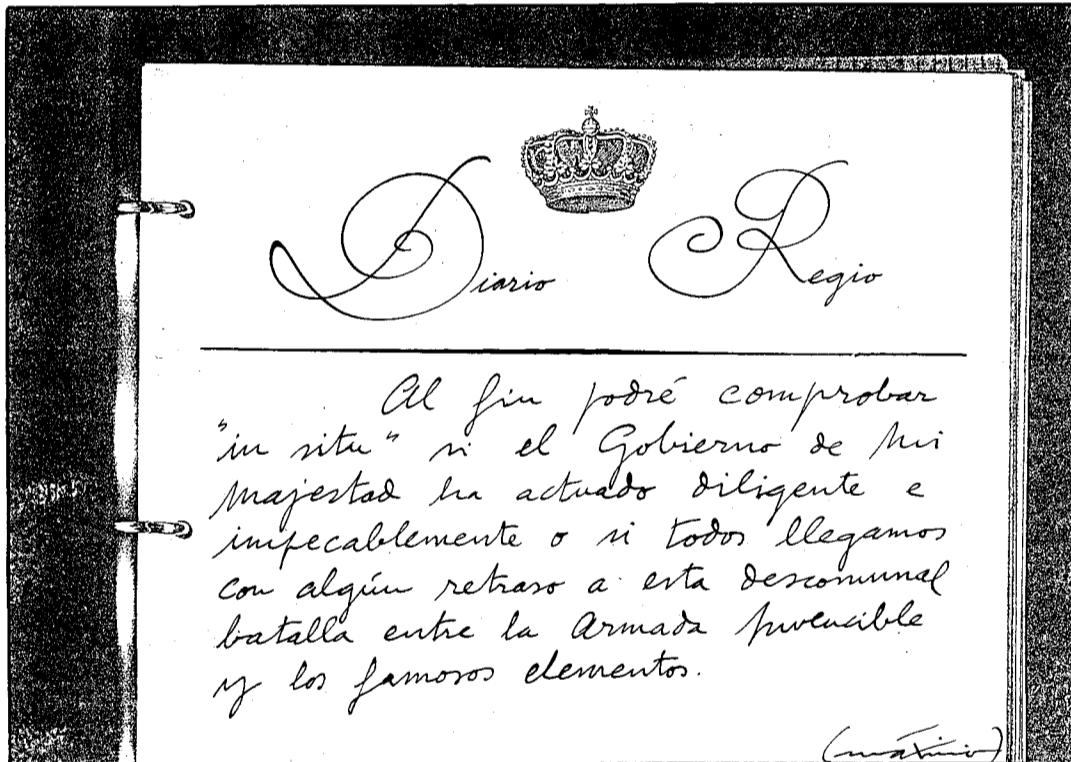 Diario Regio
Al fin podré comprobar
"in situ" si el Gobierno de mi
majestad ha actuado diligente e
impecablemente o si todos llegamos
con algún retraso a esta descomunal
batalla entre la Armada Invencible
y los famosos elementos.
(máximo)